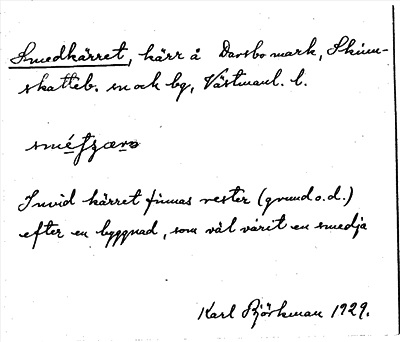 Smedkärret, kärr å Darsbo mark, Skinn-
skatteb. sn ock bg, Västmanl. l.
Invid kärret finnas rester (grund o.d.)
efter en byggnad, som väl varit en smedja
Karl Björkman 1929.